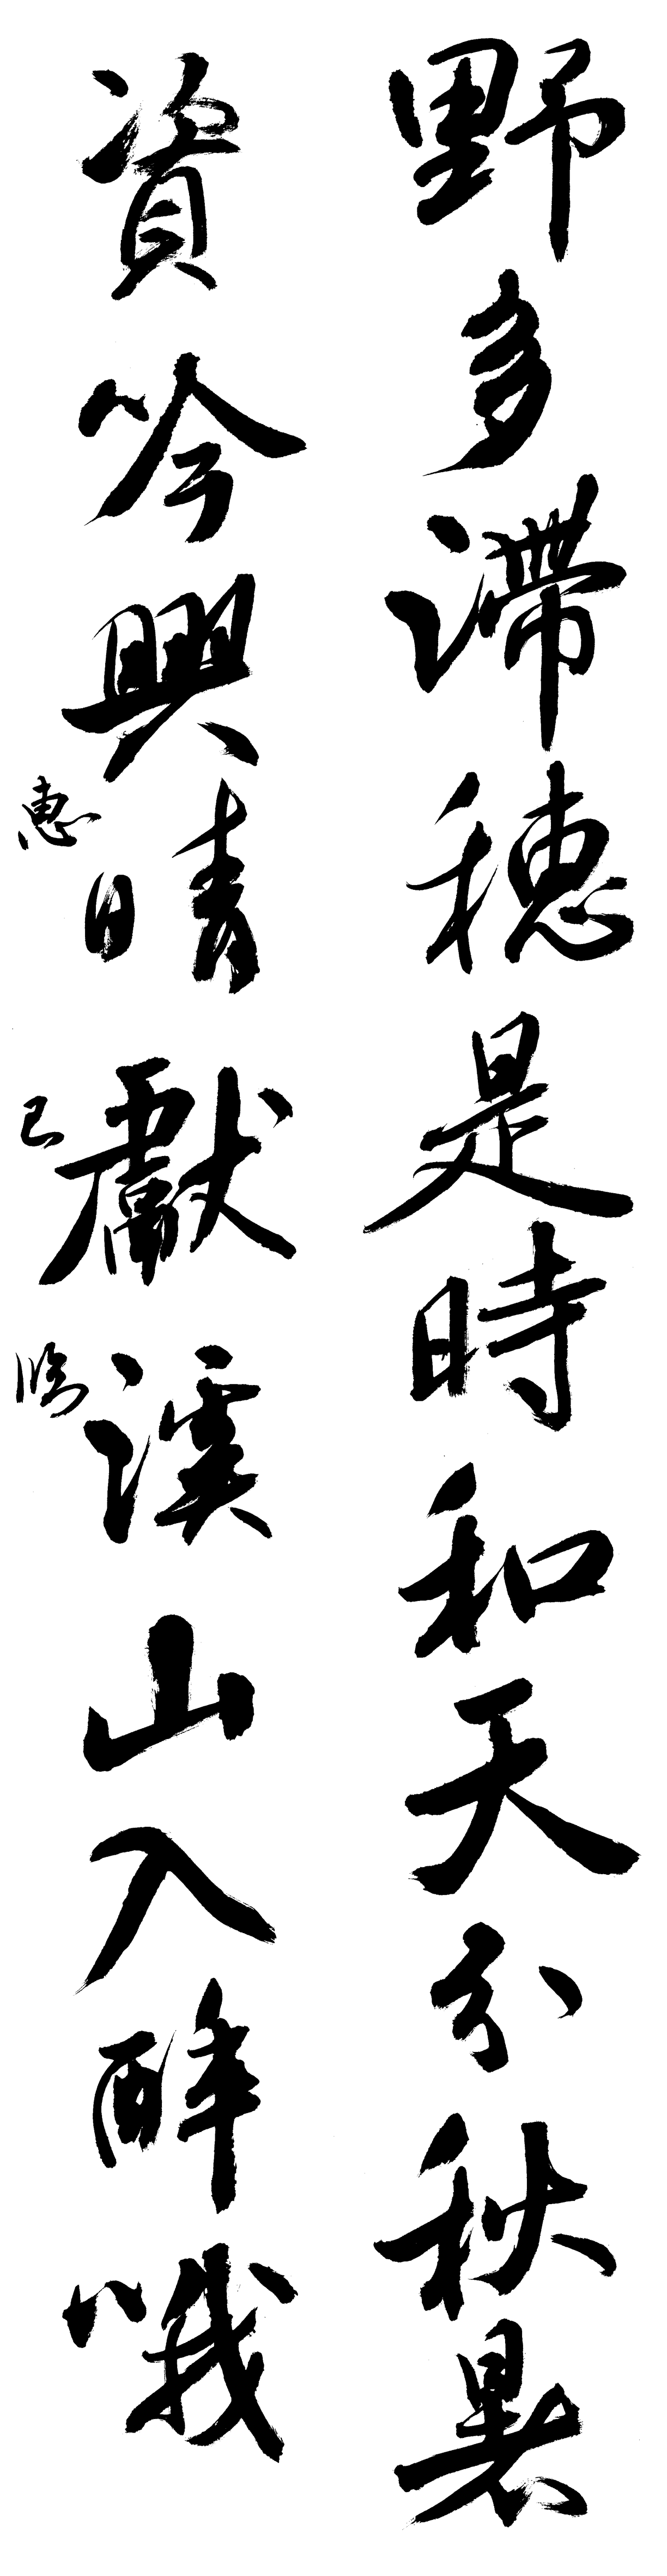 野多滯穗是時和天分秋暑
資吟興晴獻溪山入醉哦
惠己臨